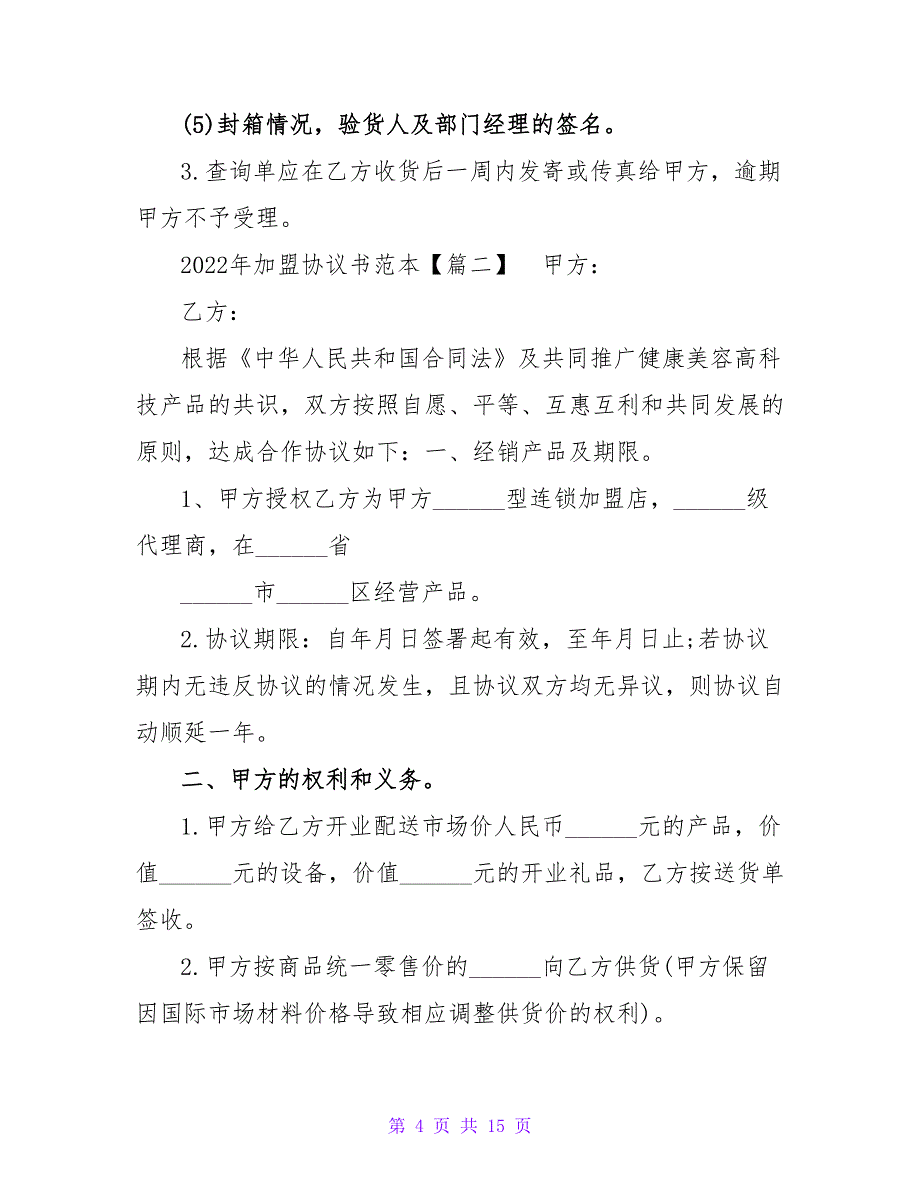 (5)封箱情况，验货人及部门经理的签名。
3.查询单应在乙方收货后一周内发寄或传真给甲方，逾期
甲方不予受理。
2022年加盟协议书范本【篇二】　甲方：
乙方：
根据《中华人民共和国合同法》及共同推广健康美容高科
技产品的共识，双方按照自愿、平等、互惠互利和共同发展的
原则，达成合作协议如下：一、经销产品及期限。
1、甲方授权乙方为甲方______型连锁加盟店，______级
代理商，在______省
______市______区经营产品。
2.协议期限：自年月日签署起有效，至年月日止;若协议
期内无违反协议的情况发生，且协议双方均无异议，则协议自
动顺延一年。
二、甲方的权利和义务。
1.甲方给乙方开业配送市场价人民币______元的产品，价
值______元的设备，价值______元的开业礼品，乙方按送货单
签收。
2.甲方按商品统一零售价的______向乙方供货(甲方保留
因国际市场材料价格导致相应调整供货价的权利)。
第 4 页 共 15 页